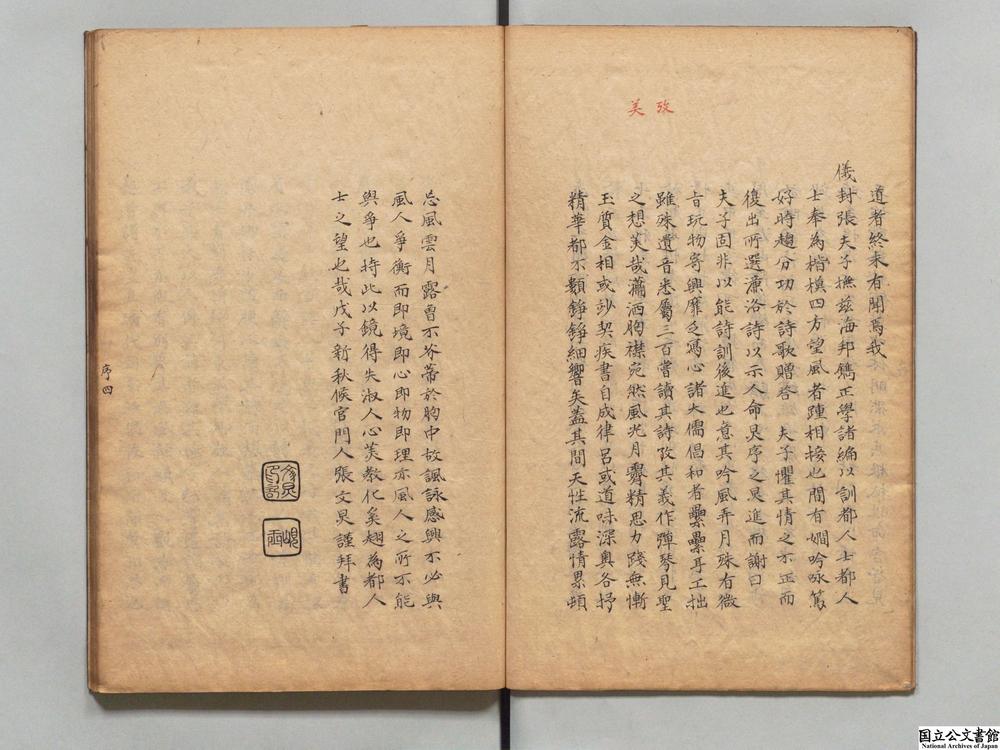 美 攷
道者終未有聞焉我
儀封張夫子撫茲海邦鐫正學諸編以訓都人士都人
士奉為楷模四方望風者踵相接也間有嫺吟咏篤
好時趨分功於詩歌贈荅　夫子懼其情之不正而
復出所選濂洛詩以示人命炅序之炅進而謝曰
夫子固非以能詩訓後進也意其吟風弄月殊有微
旨玩物寄興靡乏寫心諸大儒倡和者纍纍耳工拙
雖殊遺音悉屬三百嘗讀其詩攷其義作彈琴見聖
之想美哉瀟洒胸襟宛然風光月霽精思力踐無慚
玉質金相或紗契疾書自成律呂或道味深奧各抒
精華都不纇錚錚細響矣蓋其間天性流露情累頓
忘風雲月露曾不芥蒂於胸中故諷詠感興不必與
風人爭衡而即境即心即物即理亦風人之所不能
與爭也持此以鏡得失淑人心美教化奚翅為都人
士之望也哉戊子新秋候官門人張文炅謹拜書
序四
国立公文書館
National Archives of Japan